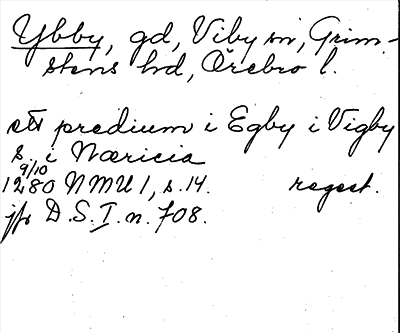 Ybby, gd, Viby sn, Grim-
stens hd, Örebro l.
ett predium i Egby i Vigby
s. i Næricia
9/10
1280 NMU 1, s. 14. regest.
jfr D.S. I. n. 708.